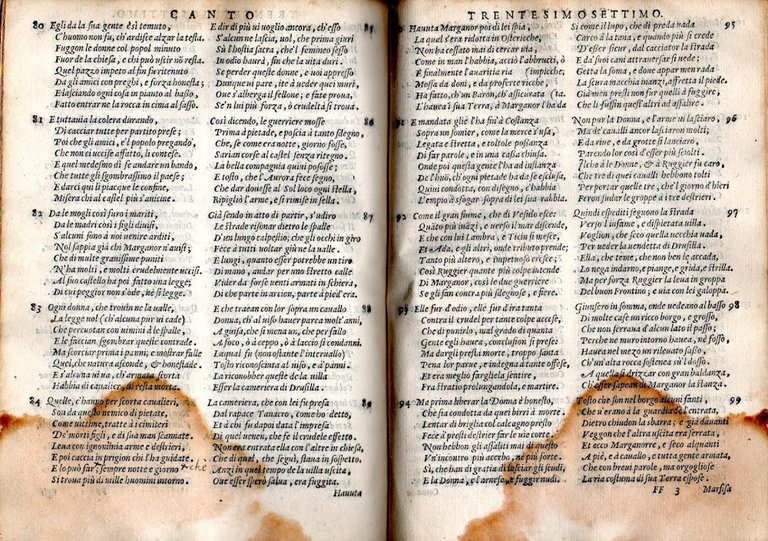 CANTO
80 Egli da la sua gente è sì temuto,
C'huomo non fu, ch'ardisse alzar la testa.
Fuggon le donne col popol minuto
Fuor de la chiesa, e chi può uscir nõ resta.
Quel pazzo impeto al fin fu ritenuto
Da gli amici con preghi, e forza honesta;
E lasciando ogni cosa in pianto al basso,
Fatto entrar ne la rocca in cima al sasso.
81 E tuttauia la colera durando,
Di cacciar tutte per partito prese;
Poi che gli amici, e'l popolo pregando,
Che non ci uccise affatto, li contese.
E quel medesmo dì fe andare un bando,
Che tutte gli sgombrassimo il paese;
E darci quì li piacque le confine,
Misera chi al castel più s'auicine.
82 Da le mogli così furo i mariti,
Da le madri così i figli diuisi.
S'alcuni sono à noi uenire arditi,
Nol sappia già chi Marganor n'auisi;
Che di multe grauissime puniti
N'ha molti, e molti crudelmente uccisi.
Al suo castello ha poi fatto una legge;
Di cui peggior non s'ode, nè si legge.
83 Ogni donna, che trouin ne la ualle,
La legge uol (ch'al cuna pur ui cade)
Che percuotan con uimini à le spalle,
E le faccian sgombrar queste contrade.
Ma scorciar prima i panni, e mostrar falle
Quel, che natura asconde, & honestade
E s'alcuna ui ua, ch'armata scorta
Habbia di caualier, ui resta morta.
84 Quelle, c'hanno per scorta caualieri,
Son da questo nemico di pietate,
Come uittime, tratte à i cimiteri
De' morti figli, e di sua man scannate.
Leua con ignominia arme, e destrieri;
E poi caccia in prigion chi l'ha guidate.
E lo può far: sempre notte e giorno chè
Si troua più di mille huomini intorno.
85 E dir di più ui uoglio ancora, ch'esso
S'alcun ne lascia, uol, che prima giuri
Sù l'hostia sacra, che'l femineo sesso
In odio haurà, fin che la uita duri.
Se perder queste donne, e uoi appresso
Dunque ui pare, ite à ueder quei muri,
Oue s'alberga il fellone; e fate proua,
Se'n lui più forza, ò crudeltà si troua.
86 Così dicendo, le guerriere mosse
Prima à pietade, e poscia à tanto sdegno,
Che, se come era notte, giorno fosse,
Sarian corse al castel senza ritegno.
La bella compagnia quiui pososse;
E tosto, che l'Aurora fece segno,
Che dar douesse al Sol loco ogni stella,
Ripigliò l'arme, e si rimise in sella.
87 Già sendo in atto di partir, s'udiro
Le strade risonar dietro le spalle
D'un lungo calpestio; che gli occhi in giro
Fece à tutti uoltar giù ne la ualle.
E lungi, quanto esser potrebbe un tiro
Di mano, andar per uno stretto calle
Vider da forse uenti armati in schiera,
Di che parte in arcion, parte à pied'era.
88 E che traean con lor sopra un cauallo
Donna, ch'al uiso hauer parea molt'anni,
A guisa, che si mena un, che per fallo
A foco, ò à ceppo, ò à laccio si condanni.
Laqual fu (non ostante l'interuallo)
Tosto riconosciuta al uiso, e à panni.
La riconobber queste de la uilla
Esser la cameriera di Drusilla.
89 La cameriera, che con lei fu presa
Dal rapace Tanacro, come ho detto,
Et à chi fu dapoi data l'impresa
Di quel uenen, che fe il crudele effetto.
Non era entrata ella con l'altre in chiesa,
Che di quel, che seguì, staua in sospetto.
Anzi in quel tempo de la uilla uscita,
Oue esser sperò salua, era fuggita.
Hauuta
TRENTESIMOSETTIMO.
90 Hauuta Marganor poi di lei spia,
La qual s'era ridotta in Osterriche,
Non ha cessato mai di cercar uia,
Come in man l'habbia, acciò l'abbrucci, ò
E finalmente l'auaritia ria (impicche,
Mossa da doni, e da proferte ricche
Ha fatto, ch'un Baron, ch'assicurata (ta.
L'hauea in sua Terra, à Marganor l'ha da
91 E mandata glie l'ha fin'à Costanza
Sopra un somier, come la merce s'usa,
Legata e stretta, e toltole possanza
Di far parole, e in una cassa chiusa.
Onde poi questa gente l'ha ad istanza
De l'huõ, ch'ogni pietade ha da se esclusa,
Quiui condotta, con disegno, c'habbia
L'empio à sfogar sopra di lei sua rabbia.
92 Come il gran fiume, che di Vesulo esce:
Quãto più inãzi, e uerso il mar discende,
E che con lui Lambra, e Ticin si mesce,
Et Ada, e gli altri, onde tributo prende;
Tanto più altero, e impetuoso cresce;
Così Ruggier quante più colpe intende
Di Marganor, così le due guerriere
Se gli fan contra più sdegnose, e fiere.
93 Elle fur d'odio, elle fur d'ira tanta
Contra il crudel per tante colpe accese,
Che di punirlo, mal grado di quanta
Gente egli hauea, conclusion si prese:
Ma dargli presta morte, troppo santa
Pena lor parue, e indegna à tante offese,
Et era meglio fargliela sentire
Fra stratio prolungandola, e martire.
94 Ma prima liberar la Donna è honesto,
Che sia condotta da quei birri à morte.
Lentar di briglia col calcagno presto
Fece à presti destrier far le uie corte.
Non hebbon gli assaliti mai di questo
V'n incontro più acerbo, nè più forte.
Sì, che han di gratia di lasciar gli scudi,
E la Donna, e l'arnese, e fuggir nudi.
95 Sì come il lupo, che di preda uada
Carco à la tana, e quando più si crede
D'esser sicur, dal cacciator la strada
E da' suoi cani attrauersar si uede;
Getta la soma, e doue appar men rada
La scura macchia inãzi, affretta il piede.
Già men presti non fur quelli à fuggire,
Che li fussin quest'altri ad assalire.
96 Non pur la Donna, e l'arme ui lasciaro,
Ma de' caualli ancor lasciaron molti;
E da riue, e da grotte si lanciaro,
Parendo lor così d'esser più sciolti.
Ilche à le Donne, & à Ruggier fu caro,
Che tre di quei caualli hebbono tolti
Per portar quelle tre, che'l giorno d'hieri
Feron sudar le groppe à i tre destrieri.
97 Quindi espediti seguono la strada
Verso l'infame, e dispietata uilla.
Voglion, che seco quella uecchia uada,
Per ueder la uendetta di Drusilla.
Ella, che teme, che non ben le accada,
Lo nega indarno, e piange, e grida, e strilla.
Ma per forza Ruggier la leua in groppa
Del buon Frontino; e uia con lei galoppa.
98 Giunsero in somma, onde uedeano al basso
Di molte case un ricco borgo, e grosso,
Che non serraua d'alcun lato il passo;
Perche ne muro intorno hauea, nè fosso,
Hauea nel mezo un rileuato sasso,
Ch'un'alta rocca sostenea sù 'l dosso.
A quella si drizzar con gran baldanza,
Ch'esser sapean di Marganor la stanza.
99 Tosto che son nel borgo alcuni fanti,
Che u'erano à la guardia de l'entrata,
Dietro chiudon la sbarra; e già dauanti
Veggon che l'altra uscita era serrata,
Et ecco Marganorre, e seco alquanti
A piè, e à cauallo, e tutta gente armata,
Che con breui parole, ma orgogliose
La ria costuma di sua Terra espose.
FF 3 Marfisa